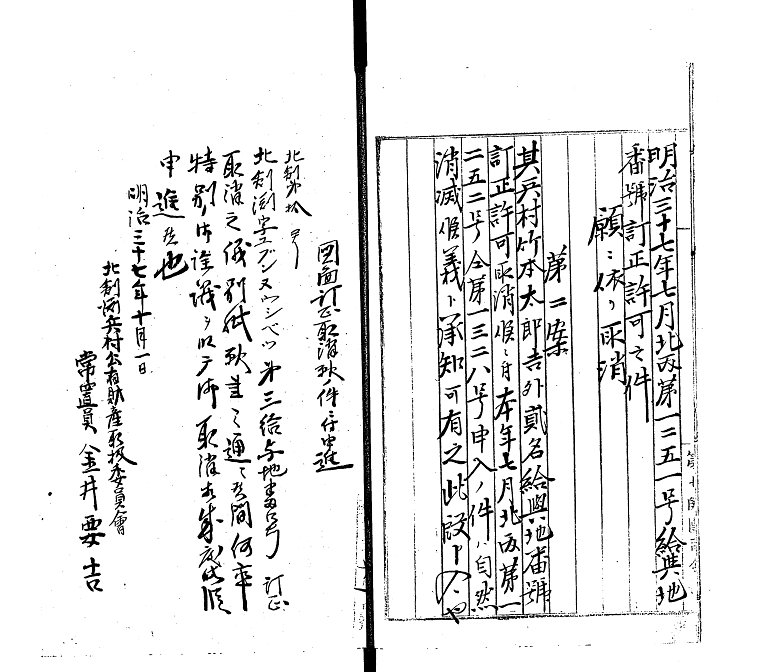 明治三十七年七月北丙第一二五一号給與地
番號訂正許可之件
願ニ依リ取消
第二案
其兵村竹本太郎吉外貳名給與地番號
訂正許可取消候ニ付本年七月北丙第一
二五二号仝第一三二八号申入ノ件ハ自然
消滅候義ト承知可有之此段申入也
図面訂正取消ノ件ニ付申進
北剣第拾号
北剣渕 第三給与地番号訂正
取消之儀別紙 之通 間何卒
特別 御詮議ヲ以テ御取消 度此段
申進 也
明治三十七年十月一日
北剣渕兵村公有財産取扱委員會
常置員 金井要吉